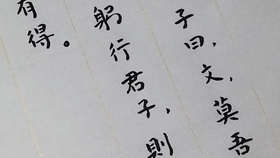 子曰，文，莫吾
躬行君子，則
有得。